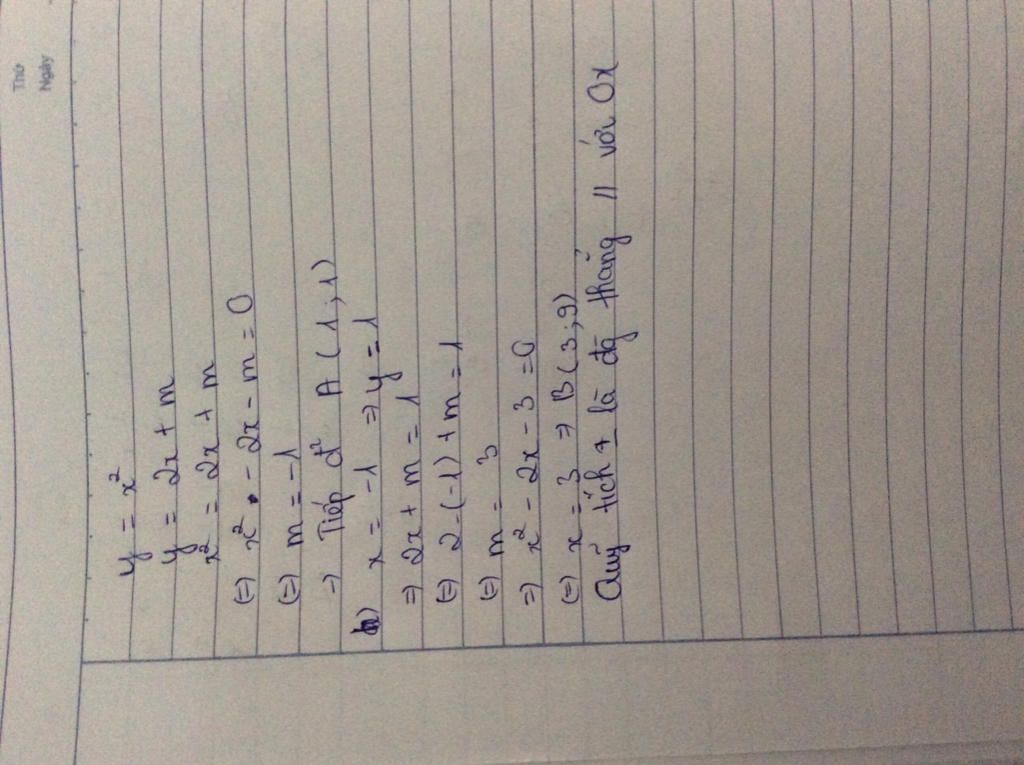 Thứ
Ngày
y = x²
y = 2x + m
x² = 2x + m
(=) x² - 2x - m = 0
(=) m = -1
→ Tiếp đ² A (1;1)
b) x = -1 ⇒ y = 1
⇒ 2x + m = 1
(=) 2.(-1) + m = 1
(=) m = 3
⇒ x² - 2x - 3 = 0
(=) x = 3 ⇒ B(3;9)
Quỹ tích là đg thẳng // với Ox